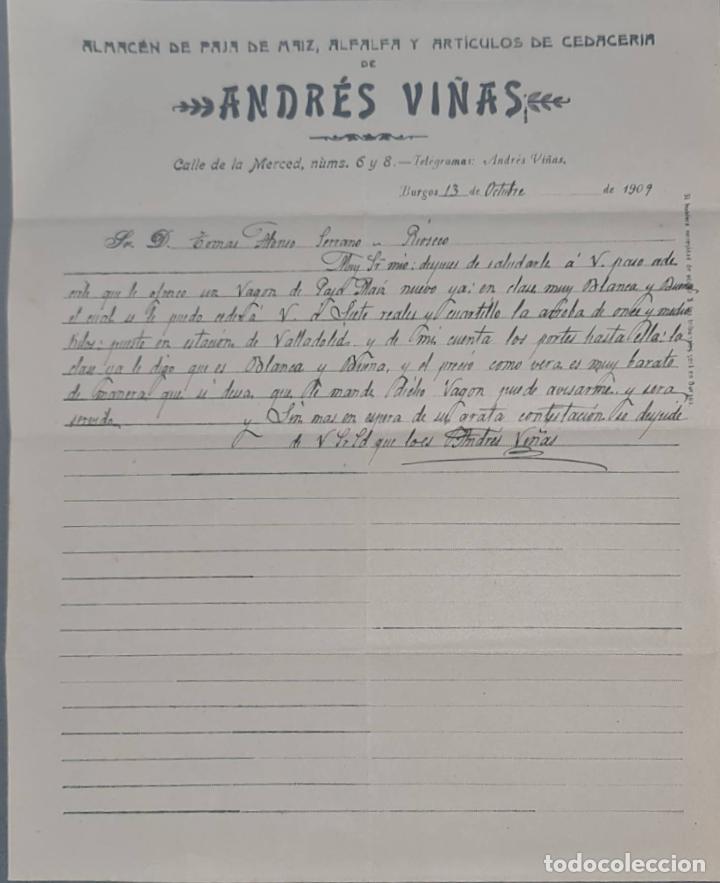 ALMACÉN DE PAJA DE MAIZ, ALFALFA Y ARTÍCULOS DE CEDACERIA
DE
ANDRÉS VIÑAS
Calle de la Merced, núms. 6 y 8.—Telegramas: Andrés Viñas.
Burgos 13 de Octubre de 1909
Sr. D. Tomas Alonso Serrano - Rioseco
Muy Sr mio: despues de saludarle á V. paso
que le ofrezco un Vagon de Paja Maiz nuevo ya: en clase muy Blanca y Buena
el cual se le puedo á V. á Siete reales y Cuartillo la arroba de once y medio
Kilos: puesto en estación de Valladolid y de mi cuenta los portes hasta ella: la
clase ya le digo que es Blanca y Buena, y el precio como vera es muy barato
de manera que si desea que le mande Dicho Vagon puede avisarme y sera
servido y Sin mas en espera de su grata contestación se despide
de V que Andrés Viñas
todocoleccion
todocoleccion.net